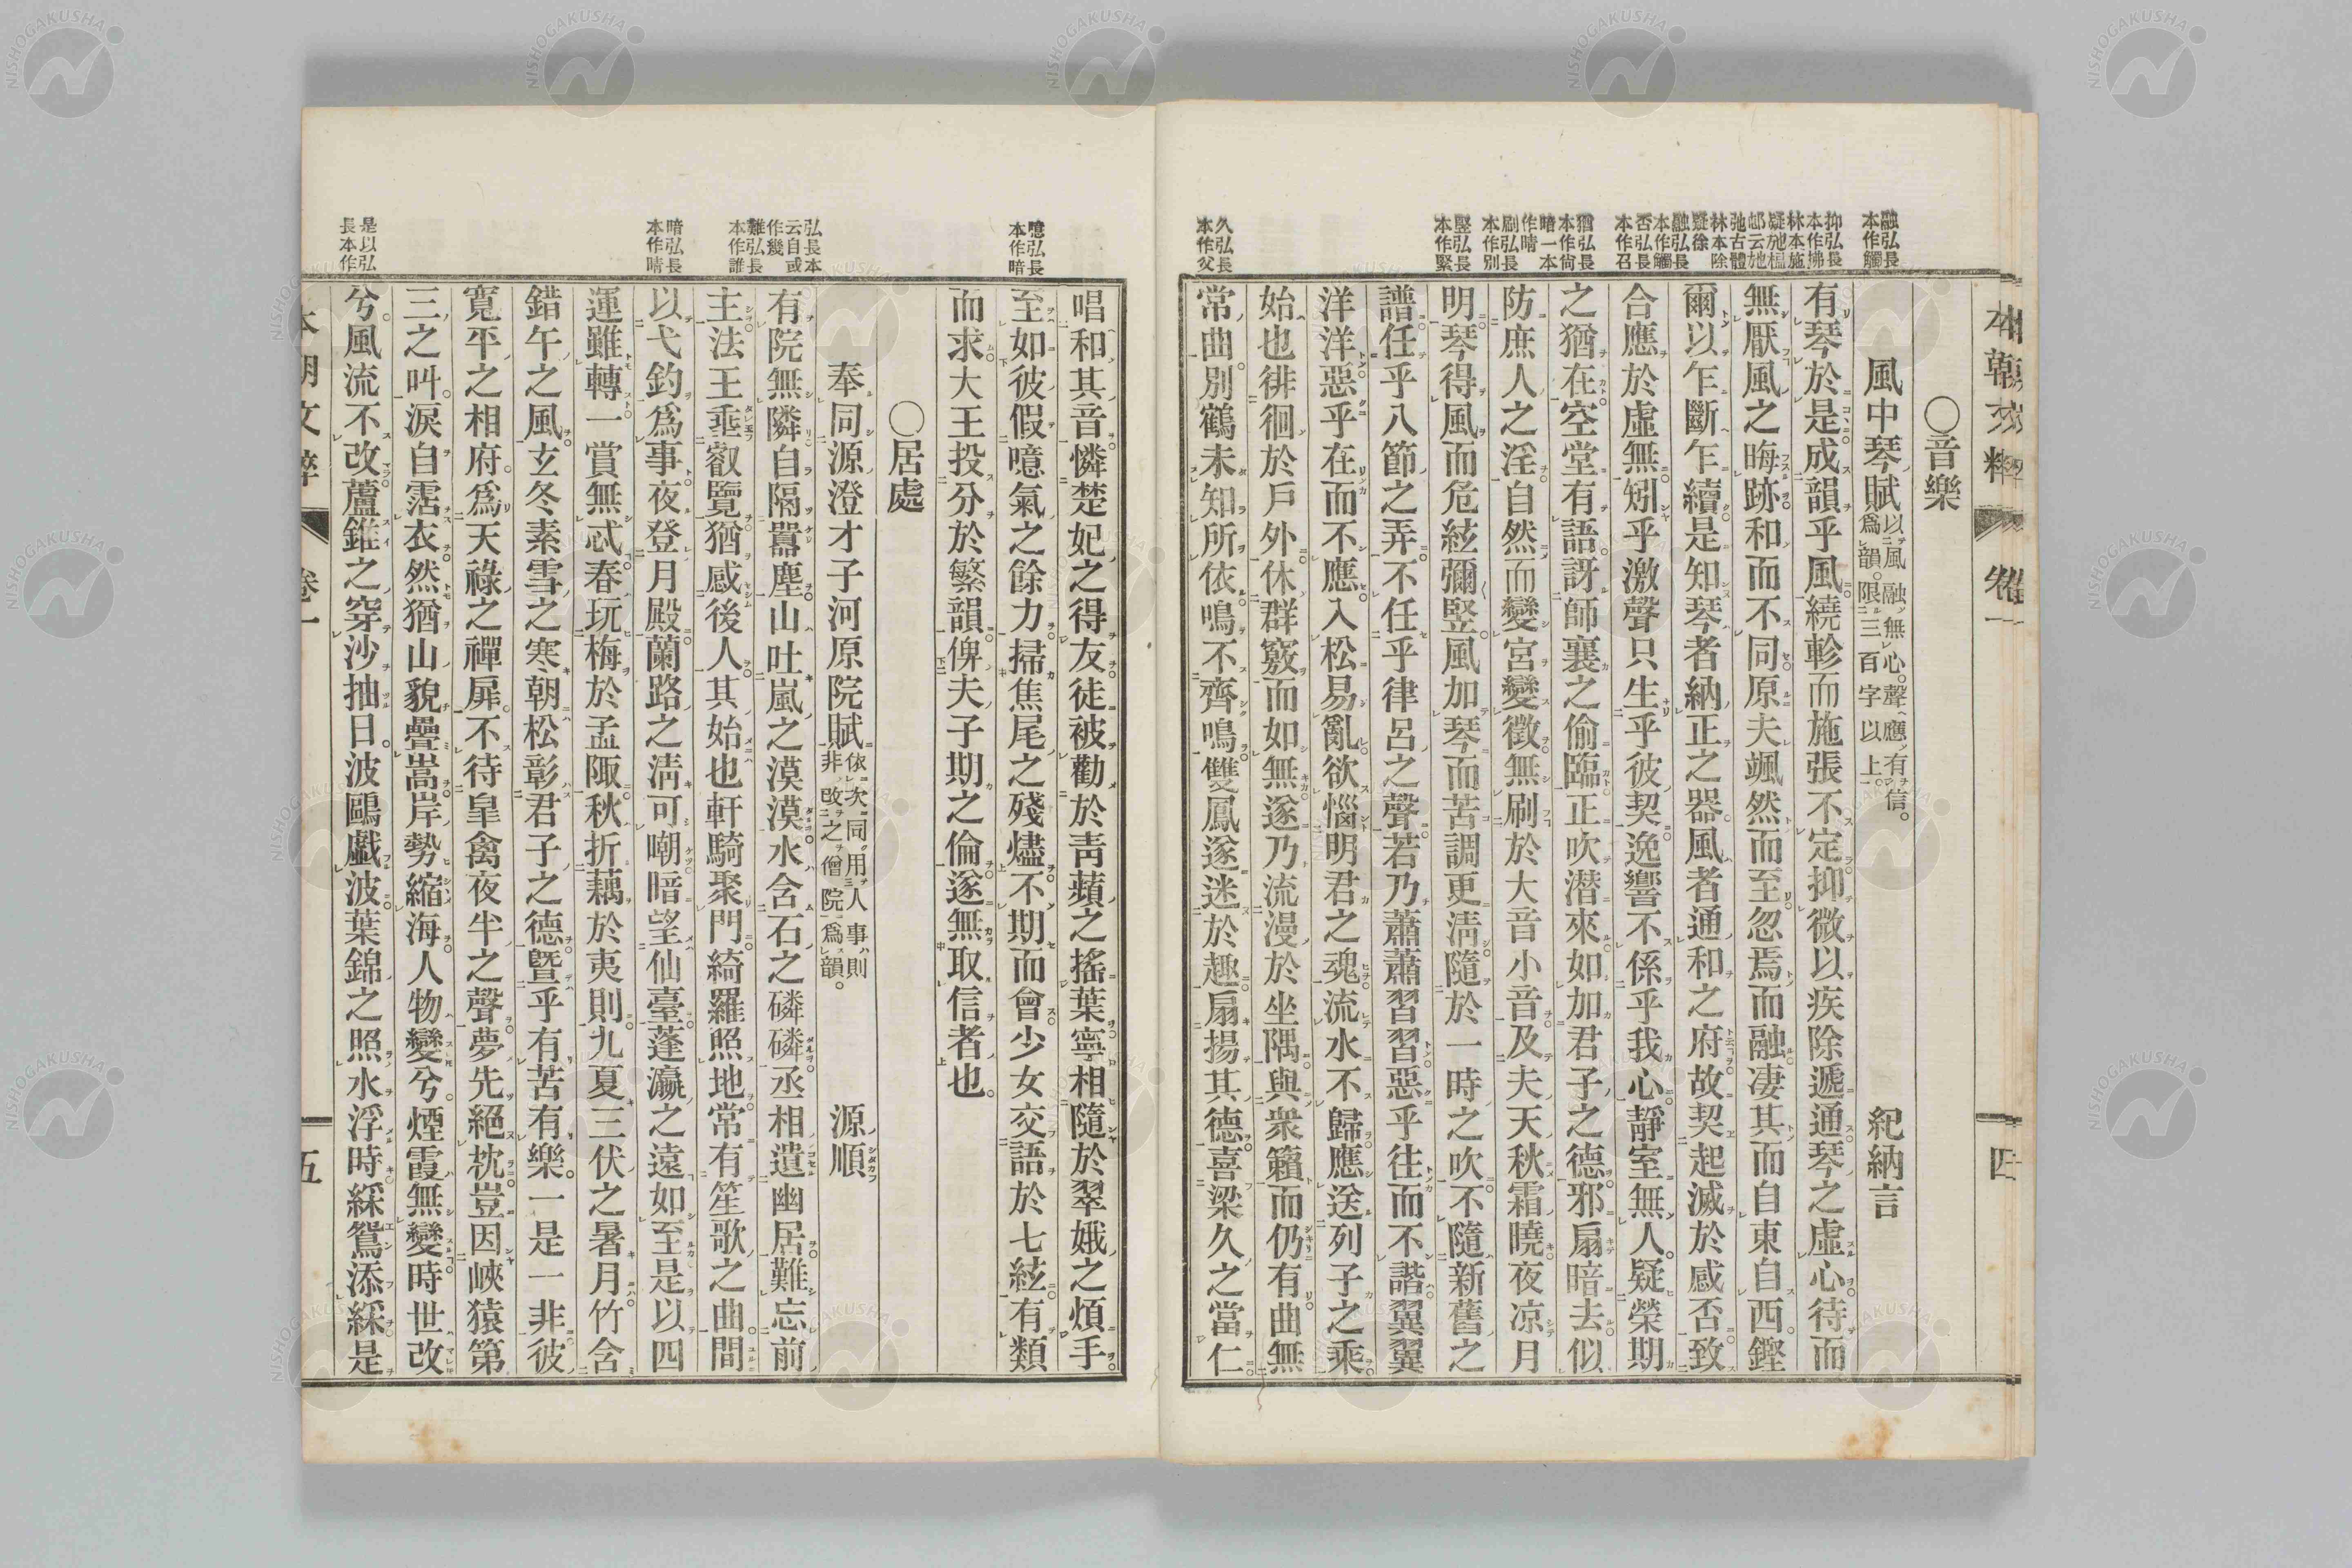 本朝文粹 卷一 四
○音樂
風中琴賦 以風融無心聲應有信
爲韻限三百字以上 紀納言
有琴於是成韻乎風繞軫而施張不定抑微以疾除遞通琴之虛心待而
無厭風之晦跡和而不同原夫颯然而至忽焉而融凄其而自東自西鏗
爾以乍斷乍續是知琴者納正之器風者通和之府故契起滅於感否致
合應於虛無矧乎激聲只生乎彼契逸響不係乎我心靜室無人疑榮期
之猶在空堂有語訝師襄之偷臨正吹潜來如加君子之德邪扇暗去似
防庶人之淫自然而變宮變徵無刷於大音小音及夫天秋霜曉夜凉月
明琴得風而危絃彌竪風加琴而苦調更淸隨於一時之吹不隨新舊之
譜任乎八節之弄不任乎律呂之聲若乃蕭蕭習習惡乎往而不諧翼翼
洋洋惡乎在而不應入松易亂欲惱明君之魂流水不歸應送列子之乘
始也徘徊於戶外休群竅而如無遂乃流漫於坐隅與衆籟而仍有曲無
常曲別鶴未知所依鳴不齊鳴雙鳳遂迷於趣扇揚其德喜梁久之當仁
融弘長
本作觸
抑弘長
本作拂
林本施
疑施榲
邨云弛
弛古體
林本除
疑徐
融弘長
本作觸
否弘長
本作召
猶弘長
本作尙
暗一本
作晴
刷弘長
本作別
堅弘長
本作緊
久弘長
本作父
唱和其音憐楚妃之得友徒被勸於靑蘋之搖葉寧相隨於翠娥之煩手
至如彼假噫氣之餘力掃焦尾之殘燼不期而會少女交語於七絃有類
而求大王投分於繁韻俾夫子期之倫遂無取信者也
○居處
奉同源澄才子河原院賦 依次同用人事則
非敢之僧院爲韻 源順
有院無隣自隔囂塵山吐嵐之漠漠水含石之磷磷丞相遺幽居難忘前
主法王垂叡覽猶感後人其始也軒騎聚門綺羅照地常有笙歌之曲間
以弋釣爲事夜登月殿蘭路之淸可嘲暗望仙臺蓬瀛之遠如至是以四
運雖轉一賞無忒春玩梅於孟陬秋折藕於夷則九夏三伏之暑月竹含
錯午之風玄冬素雪之寒朝松彰君子之德曁乎有苦有樂一是一非彼
寬平之相府爲天祿之禪扉不待皐禽夜半之聲夢先絕枕豈因峽猿第
三之叫淚自霑衣然猶山貌疊嵩岸勢縮海人物變兮煙霞無變時世改
兮風流不改蘆錐之穿沙抽日波鷗戱波葉錦之照水浮時綵鴛添綵是
噫弘長
本作暗
弘長本
云自或
作幾
難弘長
本作誰
暗弘長
本作晴
是以弘
長本作
本朝文粹 卷一 五